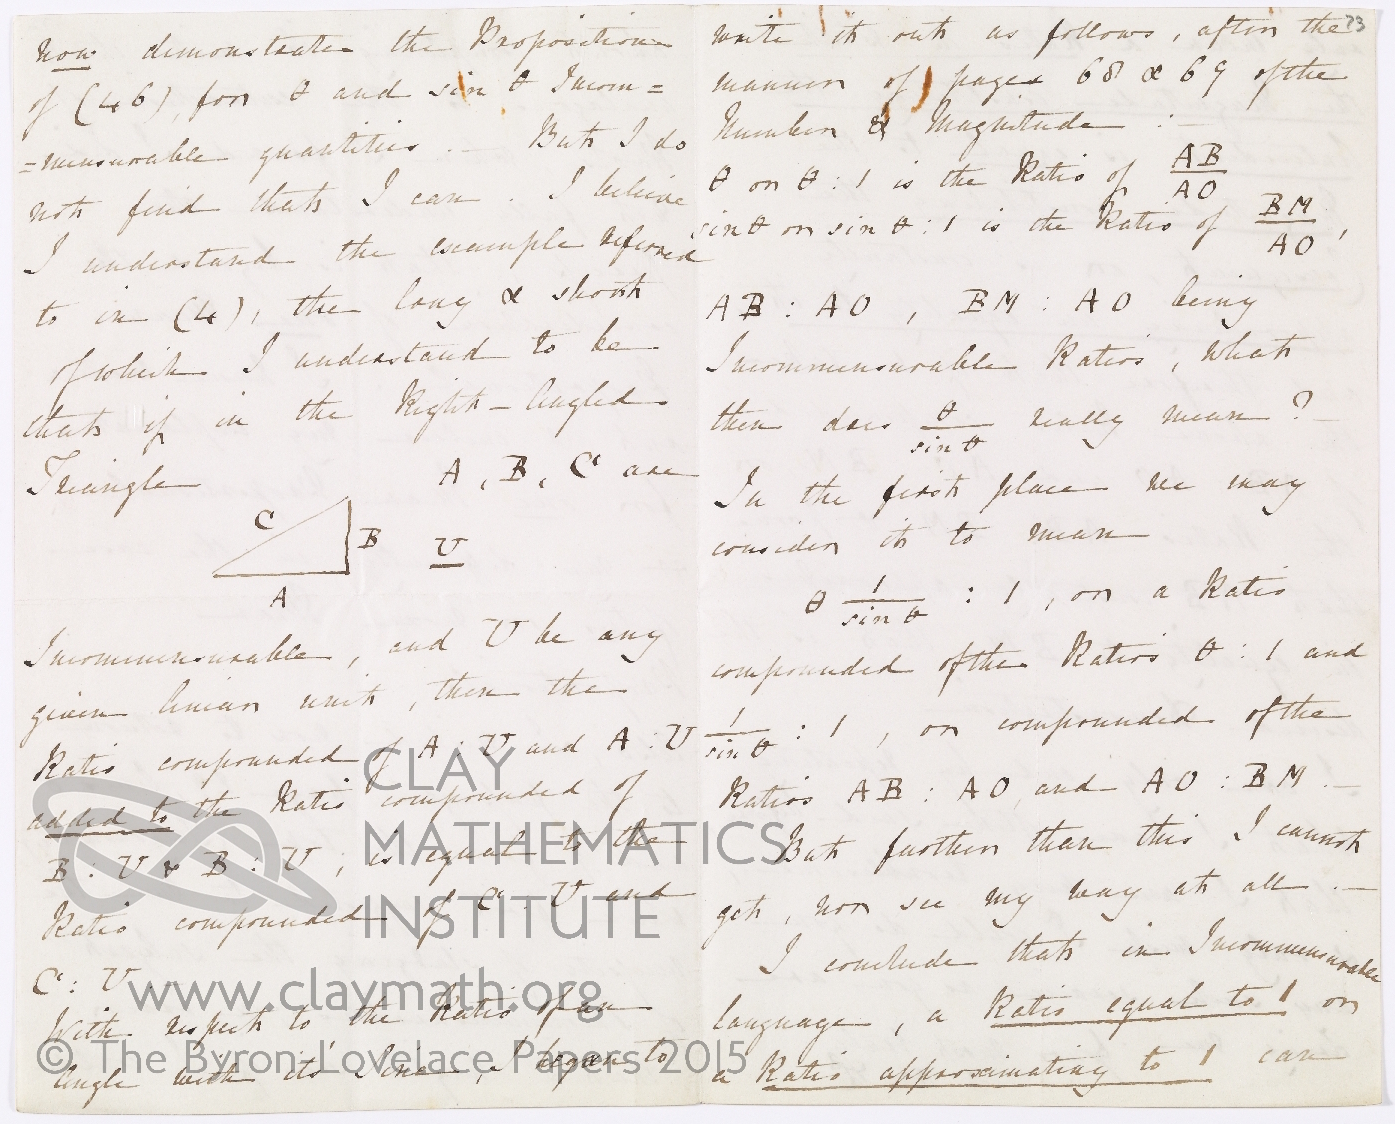 now demonstrate the Proposition
of (46), for θ and sin θ Incom=
=mensurable quantities. — But I do
not find that I can. I believe
I understand the example referred
to in (4), the long & short
of which I understand to be
that if in the Right-Angled
Triangle A, B, C are
C
B
U
A
Incommensurable, and U be any
given linear unit, then the
Ratio compounded of A : U and A : U
added to the Ratio compounded of
B : U & B : U, is equal to the
Ratio compounded of C : U and
C : U.
With respect to the Ratio of an
Angle with its' Sine, I began to
73
write it out as follows, after the
manner of pages 68 & 69 of the
Number & Magnitude : —
θ or θ : 1 is the Ratio of AB/AO
sin θ or sin θ : 1 is the Ratio of BM/AO,
AB : AO, BM : AO being
Incommensurable Ratios, what
then does θ/sin θ really mean? —
In the first place we may
consider it to mean
θ 1/sin θ : 1, or a Ratio
compounded of the Ratios θ : 1 and
1/sin θ : 1, or compounded of the
Ratios AB : AO and AO : BM. —
But further than this I cannot
get, nor see my way at all. —
I conclude that in Incommensurable
language, a Ratio equal to 1 or
a Ratio approximating to 1 can
CLAY
MATHEMATICS
INSTITUTE
www.claymath.org
© The Byron-Lovelace Papers 2015